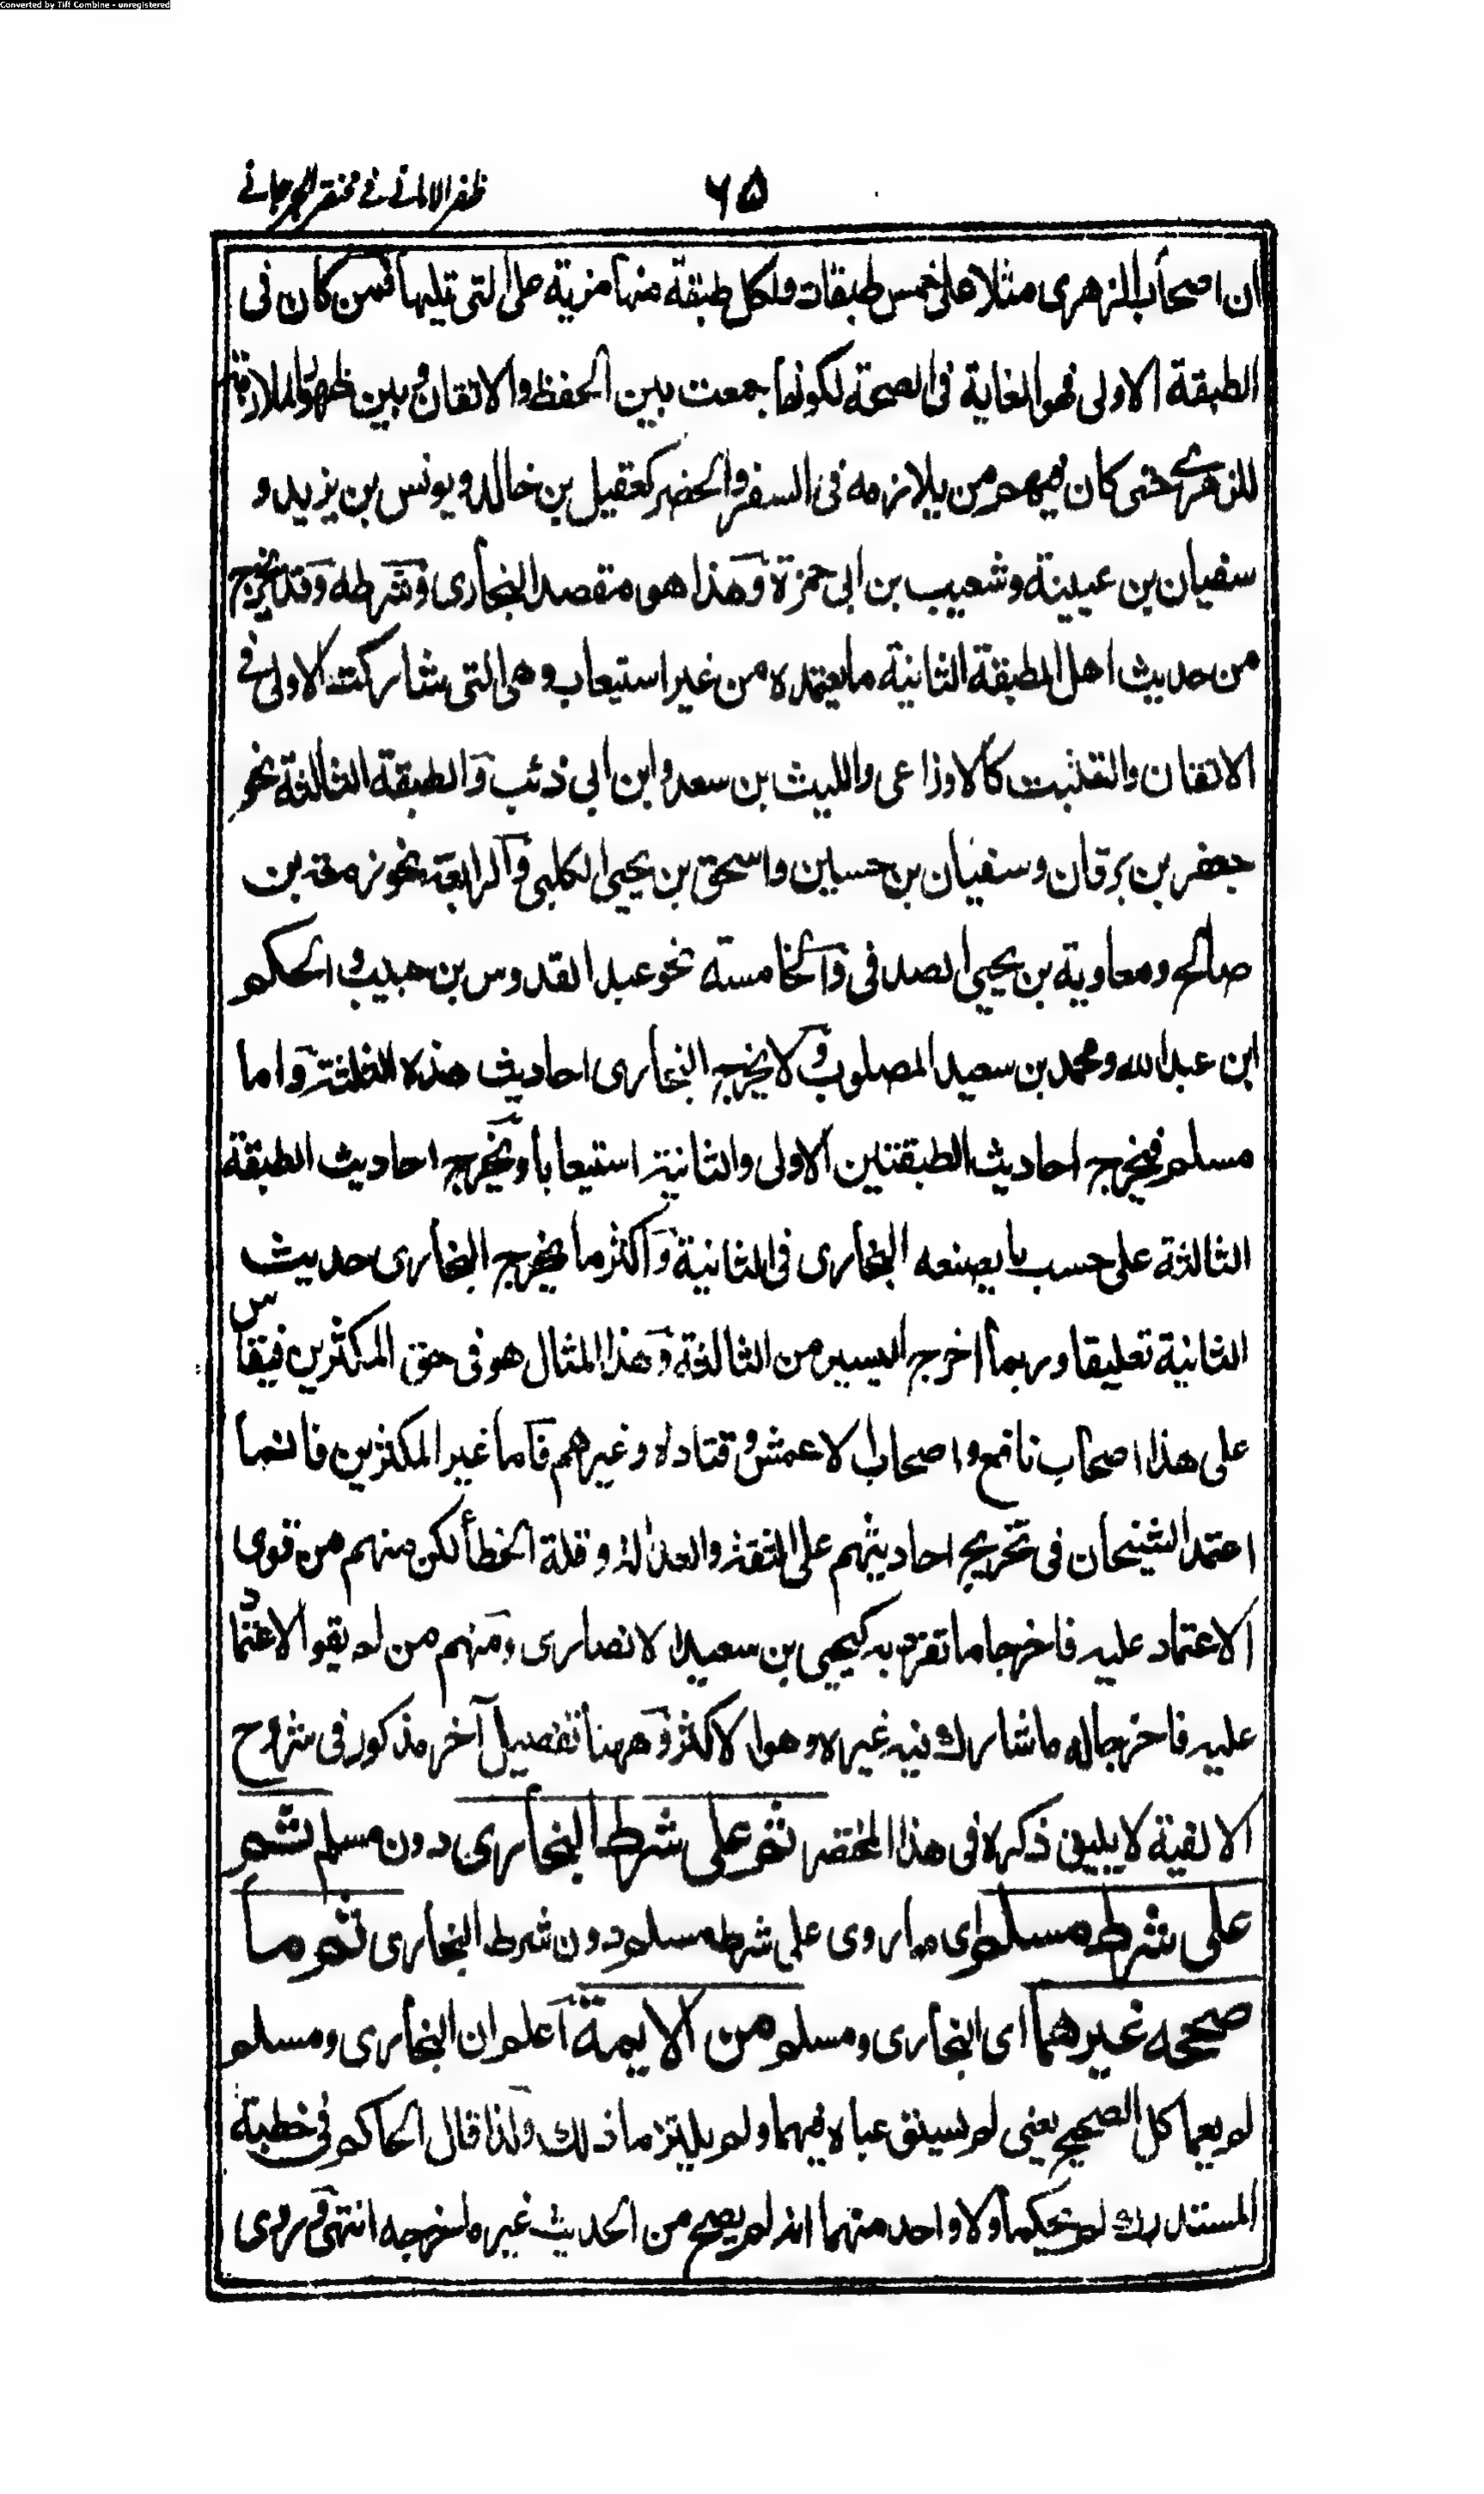 Converted by Tiff Combine - unregistered
٦٥
ظفر الامانى فى مختصر الجرجانى
ان اصحاب الزهرى مثلا على خمس طبقات ولكل طبقة منها مزية على التى تليها فمن كان فى
الطبقة الاولى فهو الغاية فى الصحة لكونها جمعت بين الحفظ والاتقان وبين طول الملازمة
للزهرى حتى كان فيهم من يلازمه فى السفر والحضر كعقيل بن خالد ويونس بن يزيد و
سفيان بن عيينة وشعيب بن ابى حمزة وهذا هو مقصد البخارى وشرطه وقد يخرج
من حديث اهل الطبقة الثانية ما يعتمده من غير استيعاب وهى التى شاركت الاولى فى
الاتقان والتثبت كالاوزاعى والليث بن سعد وابن ابى ذئب والطبقة الثالثة نحو
جعفر بن برقان وسفيان بن حسين واسحق بن يحيى الكلبى والرابعة نحو زمعة بن
صالح ومعاوية بن يحيى الصدفى والخامسة نحو عبد القدوس بن حبيب والحكم
ابن عبد الله ومحمد بن سعيد المصلوب ولا يخرج البخارى احاديث هذه الثلثة واما
مسلم فيخرج احاديث الطبقتين الاولى والثانية استيعابا ويخرج احاديث الطبقة
الثالثة على حسب ما يصنعه البخارى فى الثانية واكثر ما يخرج البخارى حديث
الثانية تعليقا وربما اخرج اليسير من الثالثة وهذا المثال هو فى حق المكثرين فيقاس
على هذا اصحاب نافع واصحاب الاعمش وقتاده وغيرهم فاما غير المكثرين فانما
اعتمد الشيخان فى تخريج احاديثهم على الثقة والعدالة وقلة الخطأ لكن منهم من قوى
الاعتماد عليه فاخرجا ما تفرد به كيحيى بن سعيد الانصارى ومنهم من لم يقو الاعتماد
عليه فاخرجا له ما شارك فيه غيره وهو الاكثر وههنا تفصيل آخر مذكور فى شروح
الالفية لا يليق ذكره فى هذا المختصر ثم على شرط البخارى دون مسلم ثم
على شرط مسلم اى ما روى على شرط مسلم دون شرط البخارى ثم ما
صححه غيرهما اى البخارى ومسلم من الايمة اعلم ان البخارى ومسلم
لم يعما كل الصحيح يعنى لم يستوعباه فيهما ولم يلتزما ذلك ولذا قال الحاكم فى خطبة
المستدرك لم يحكما ولا واحد منهما انه لم يصح من الحديث غير ما اخرجه انتهى وروى